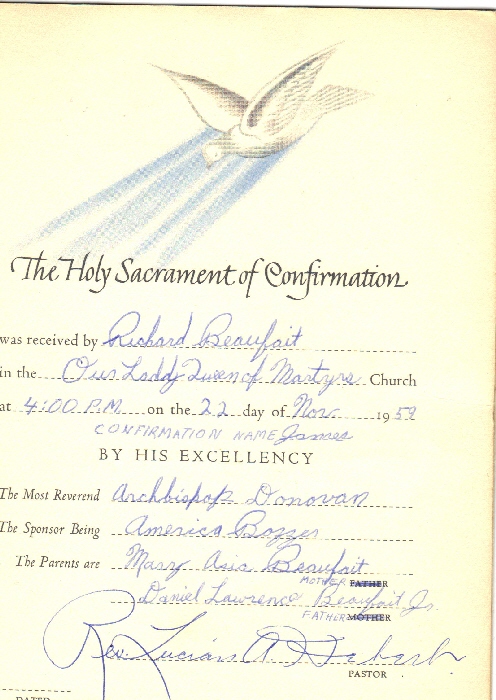 The Holy Sacrament of Confirmation
was received by Richard Beaufait
in the Our Laddy Queen of Martyrs Church
at 4:00 P.M. on the 22 day of Nov. 1959
CONFIRMATION NAME James
BY HIS EXCELLENCY
The Most Reverend Archbishop Donovan
The Sponsor Being Americo
The Parents are Mary Beaufait
MOTHER FATHER
Daniel Lawrence Beaufait Jr.
FATHER MOTHER
Rev. Lucian A. Hebert
PASTOR